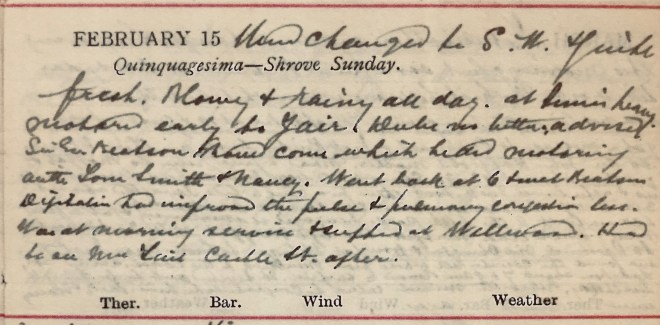 FEBRUARY 15 Wind changed to S.W. & quite
Quinquagesima—Shrove Sunday.
fresh. Blowy & rainy all day. at times heavy.
motored early to Yair. Duke no better, advised
Sir Beatson come which he did motoring
with Tom Smith & Nancy. Went back at 6 & met Beatson
Digitalin had improved the pulse & pulmonary congestion less.
Was at morning service & supped at Wellwood. Had
to see Mrs Castle St. after.
Ther. Bar. Wind Weather